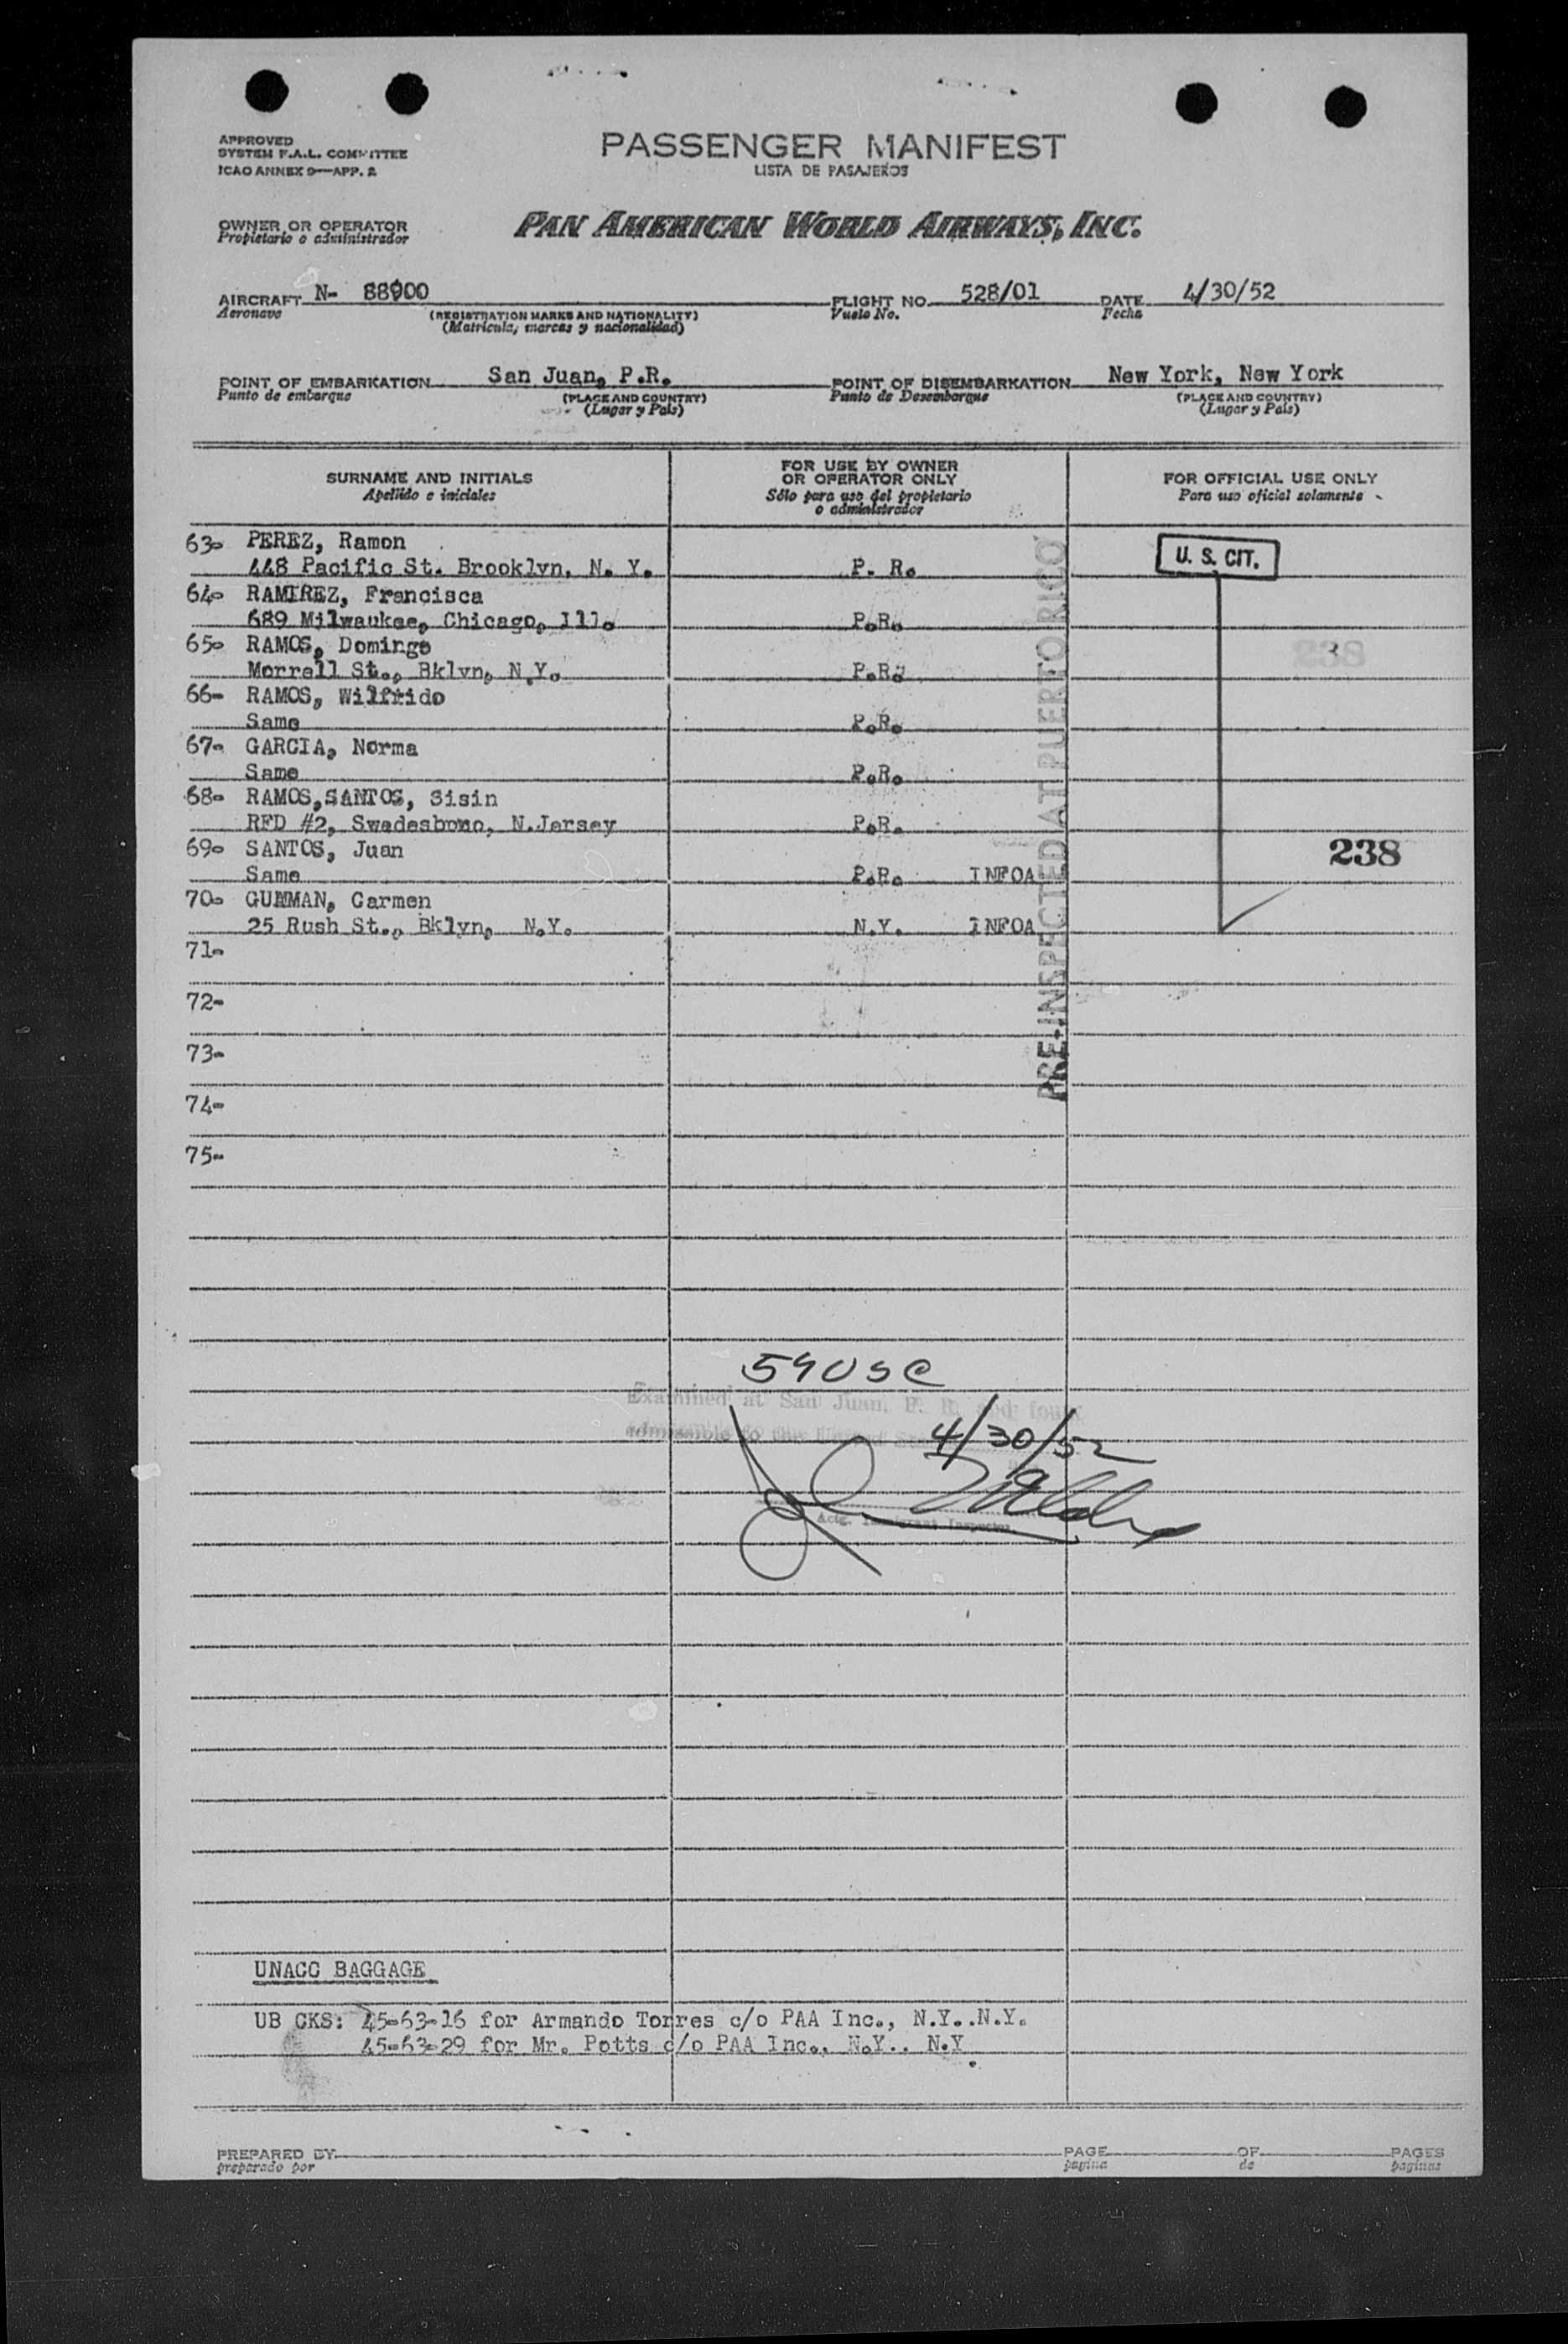 APPROVED
SYSTEM F.A.L. COMMITTEE
ICAO ANNEX 9—APP. 2
PASSENGER MANIFEST
LISTA DE PASAJEROS
OWNER OR OPERATOR
Propietario o administrador
PAN AMERICAN WORLD AIRWAYS, INC.
AIRCRAFT N- 88900 FLIGHT NO. 528/01 DATE 4/30/52
Aeronave (REGISTRATION MARKS AND NATIONALITY) Vuelo No. Fecha
(Matricula, marcas y nacionalidad)
POINT OF EMBARKATION San Juan, P.R. POINT OF DISEMBARKATION New York, New York
Punto de embarque (PLACE AND COUNTRY) Punto de Desembarque (PLACE AND COUNTRY)
(Lugar y País) (Lugar y País)
SURNAME AND INITIALS
Apellido e iniciales
FOR USE BY OWNER
OR OPERATOR ONLY
Sólo para uso del propietario
o administrador
FOR OFFICIAL USE ONLY
Para uso oficial solamente
63- PEREZ, Ramon
448 Pacific St. Brooklyn, N. Y. P. R.
U. S. CIT.
64- RAMIREZ, Francisca
689 Milwaukee, Chicago, Ill. P.R.
65- RAMOS, Domingo
Morrell St., Bklyn, N.Y. P.R.
238
66- RAMOS, Wilfrido
Same P.R.
67- GARCIA, Norma
Same P.R.
68- RAMOS,SANTOS, Sisin
RFD #2, Swedesboro, N.Jersey P.R.
69- SANTOS, Juan 238
Same P.R. INFOA
70- GUZMAN, Carmen
25 Rush St., Bklyn, N.Y. N.Y. INFOA
PRE-INSPECTED AT PUERTO RICO
71-
72-
73-
74-
75-
59USC
Examined at San Juan, P. R. and found
admissible to the United States
4/30/52
Actg. Immigrant Inspector
UNACC BAGGAGE
UB CKS: 45-63-16 for Armando Torres c/o PAA Inc., N.Y..N.Y.
45-63-29 for Mr. Potts c/o PAA Inc., N.Y., N.Y.
PREPARED BY PAGE OF PAGES
preparado por pagina de paginas